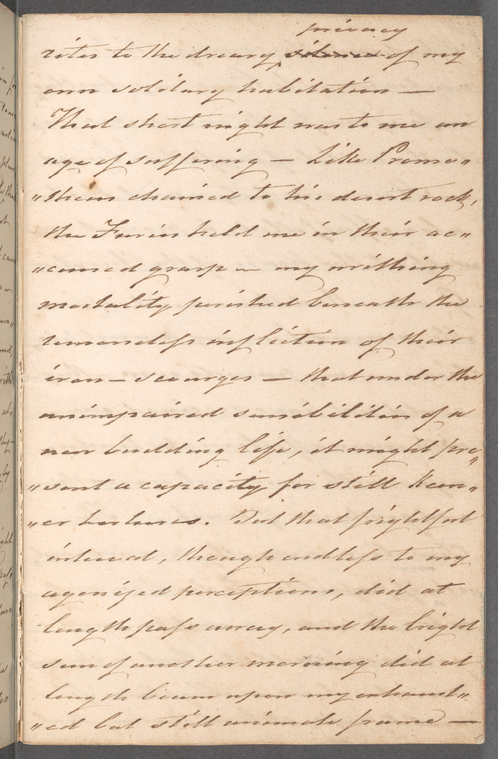 privacy
rites to the dreary silence of my
own solitary habitation —
That short night was to me an
age of suffering — Like Prome„
„theus chained to his desert rock,
the Furies held me in their ac„
„cursed grasp — my writhing
mortality perished beneath the
remorseless infliction of their
iron – scourges — that under the
unimpaired sensibilities of a
new budding life, it might pre„
„sent a capacity for still keen„
„er tortures. But that frightful
interval, though endless to my
agonized perceptions, did at
length pass away, and the bright
sun of another morning did at
length beam upon my exhaust„
„ed but still animate frame —